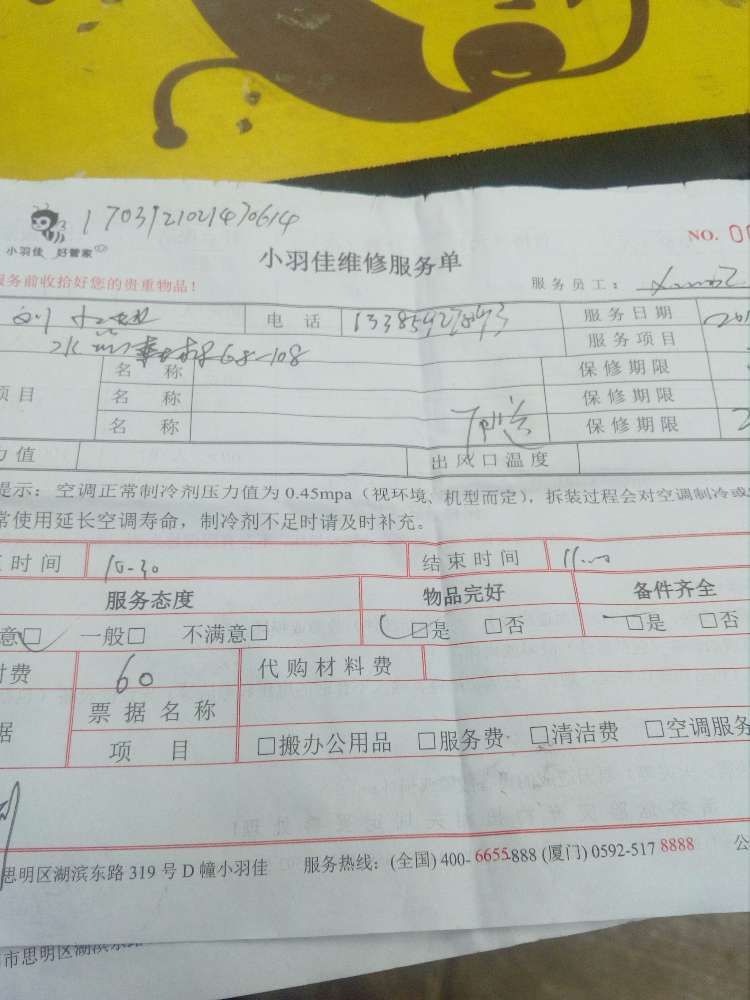 1703121021430614
小羽佳 好管家
NO. 00
小羽佳维修服务单
服务前收拾好您的贵重物品！
服务员工：
刘
电 话
服务日期
201
68-108
服务项目
名 称
保修期限
项目
名 称
保修期限
名 称
保修期限
力值
出风口温度
提示：空调正常制冷剂压力值为 0.45mpa（视环境、机型而定），拆装过程会对空调制冷或
常使用延长空调寿命，制冷剂不足时请及时补充。
时间
10-30
结束时间
11.00
服务态度
物品完好
备件齐全
意□ 一般□ 不满意□
□是 □否
□是 □否
付费
60
代购材料费
据
票据名称
项 目
□搬办公用品 □服务费 □清洁费 □空调服务
思明区湖滨东路 319 号 D 幢小羽佳 服务热线：(全国) 400-6655-888 (厦门) 0592-517 8888 公
市思明区湖滨东路